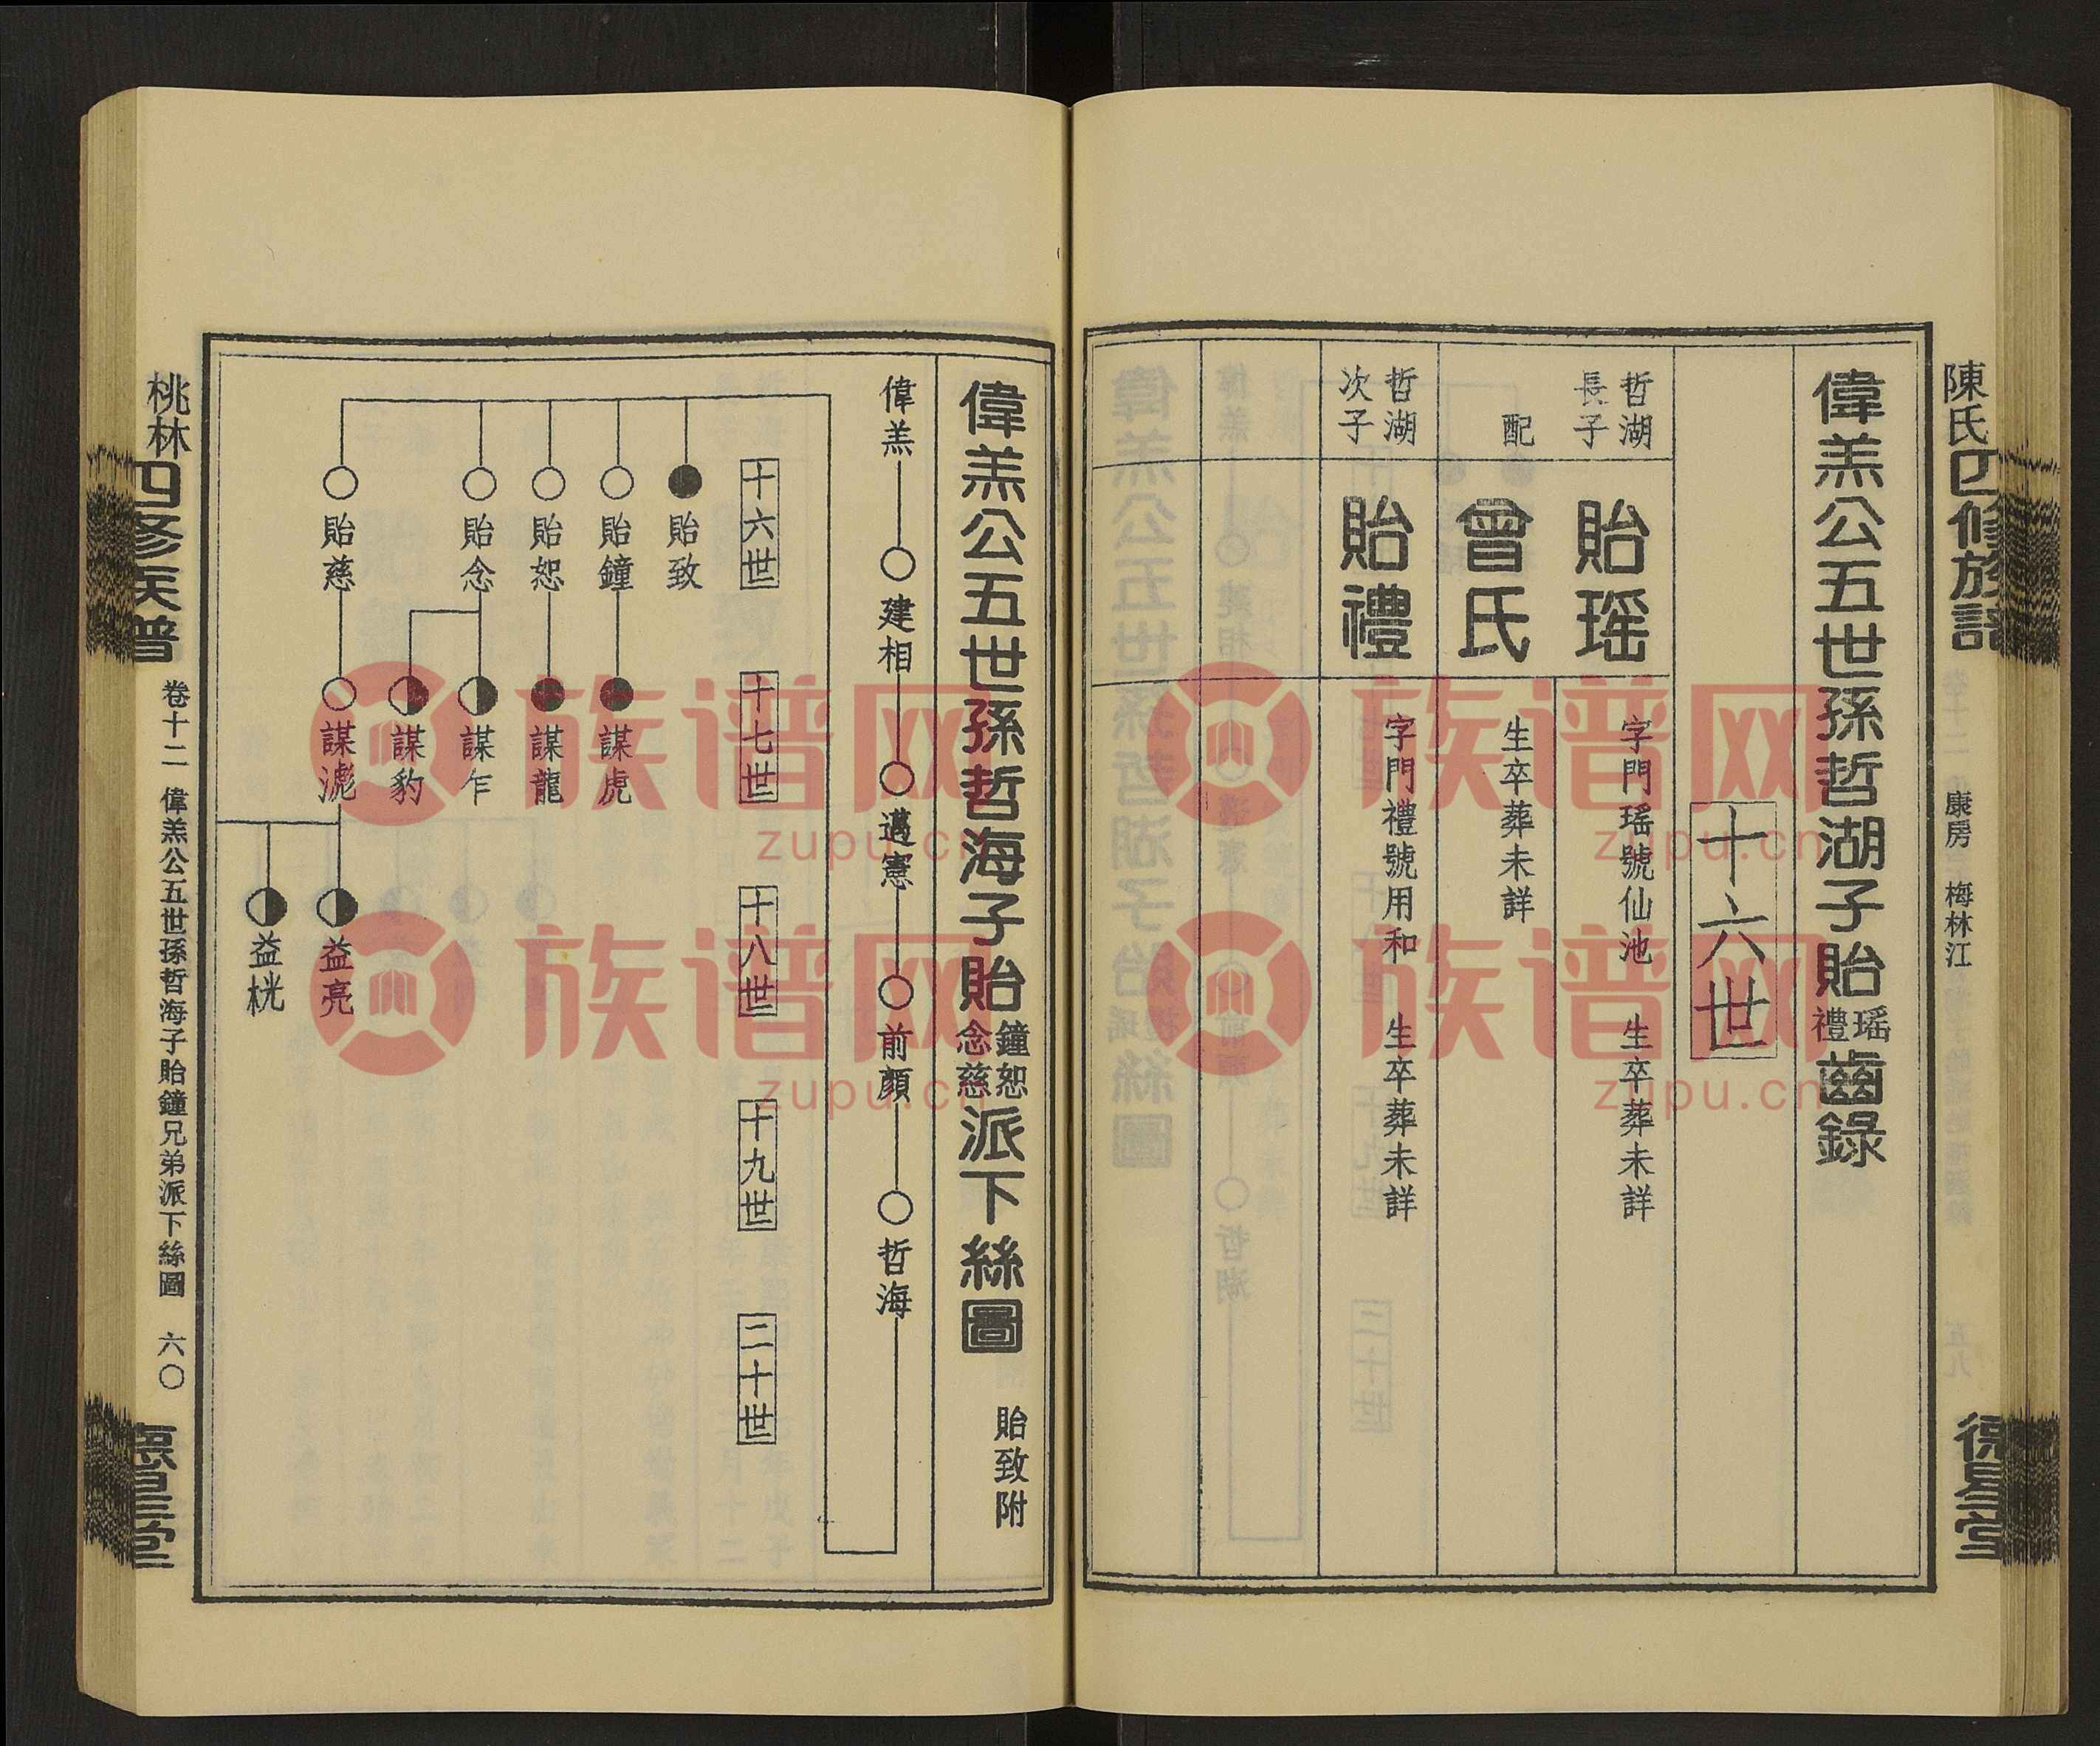 陳氏四修族譜
康房 梅林江
德星堂
偉羔公五世孫哲湖子貽瑶禮齒錄
十六世
哲湖長子
貽瑶
字門瑤號仙池 生卒葬未詳
配
曾氏
生卒葬未詳
哲湖次子
貽禮
字門禮號用和 生卒葬未詳
偉羔公五世孫哲海子貽鐘恕念慈派下絲圖 貽致附
偉羔 建相 邁憲 前顏 哲海
十六世 十七世 十八世 十九世 二十世
貽致
貽鐘 謀虎
貽恕 謀龍
貽念 謀乍
謀豹
貽慈 謀滮 益亮
益桄
桃林四修族譜 卷十二 偉羔公五世孫哲海子貽鐘兄弟派下絲圖 六〇
德星堂
族谱网
zupu.cn
族谱网
zupu.cn
族谱网
zupu.cn
族谱网
zupu.cn